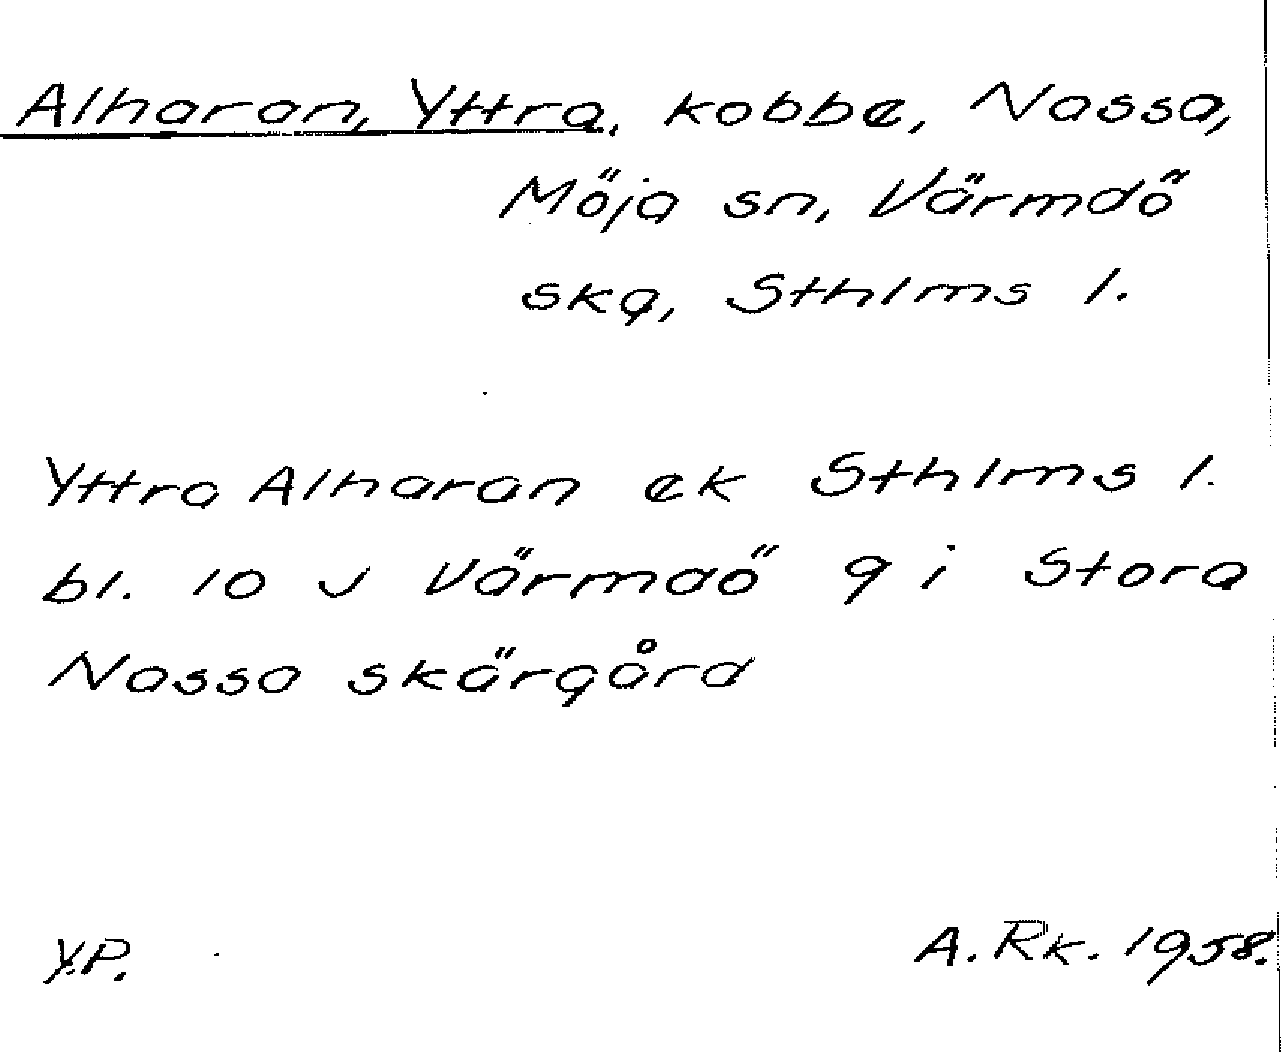 Alharan, Yttra, kobbe, Nassa,
Möja sn, Värmdö
skg, Sthlms l.
Yttra Alharan ek Sthlms l.
bl. 10 J Värmdö 9 i Stora
Nassa skärgård
Y.P. A. Rk. 1958.